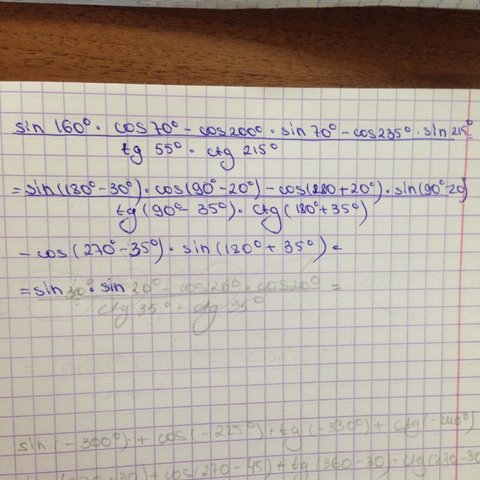 sin 160° · cos 70° - cos 200° · sin 70° - cos 235° · sin 215° =
tg 55° · ctg 215°
= sin(180° - 30°) · cos(90° - 20°) - cos(180 + 20°) · sin(90° - 20°)
tg(90° - 35°) · ctg(180° + 35°)
- cos(270° - 35°) · sin(180° + 35°) =
= sin 30° · sin 20° - cos 20° · cos 20° =
ctg 35° · ctg 35°
sin(-300°) + cos(-225°) + tg(-330°) + ctg(-240°)
+ cos(270 - 45) + tg(360 - 30) · ctg(270 - 30